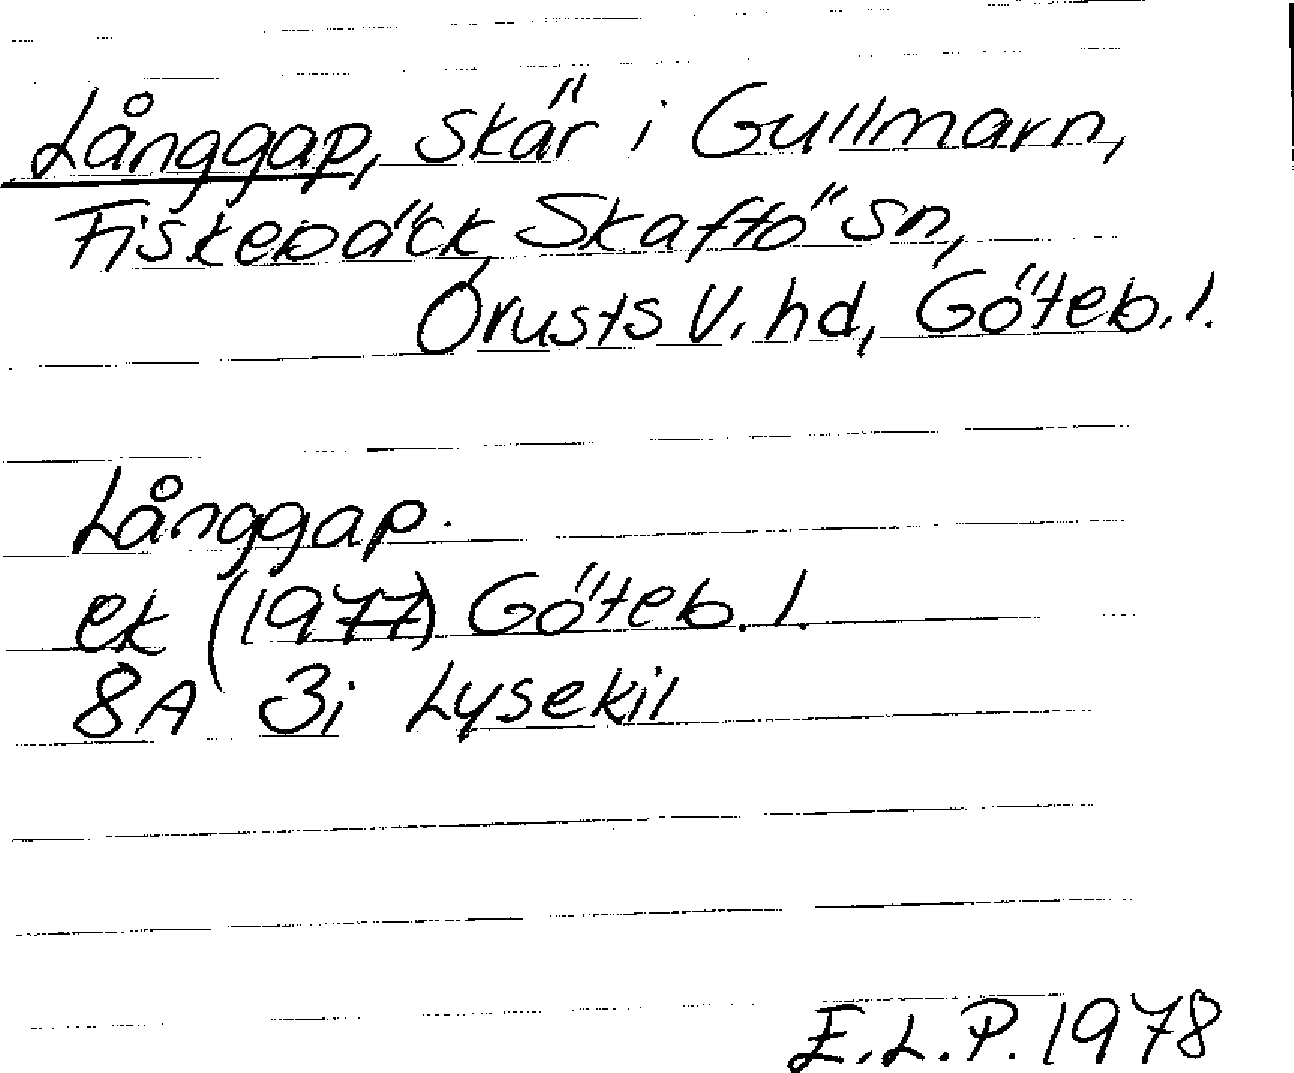 Långgap, skär i Gullmarn,
Fiskebäck, Skaftö sn,
Orusts V. hd, Göteb. l.
Långgap.
ek (1977) Göteb. l.
8A 3i Lysekil
E.L.P. 1978